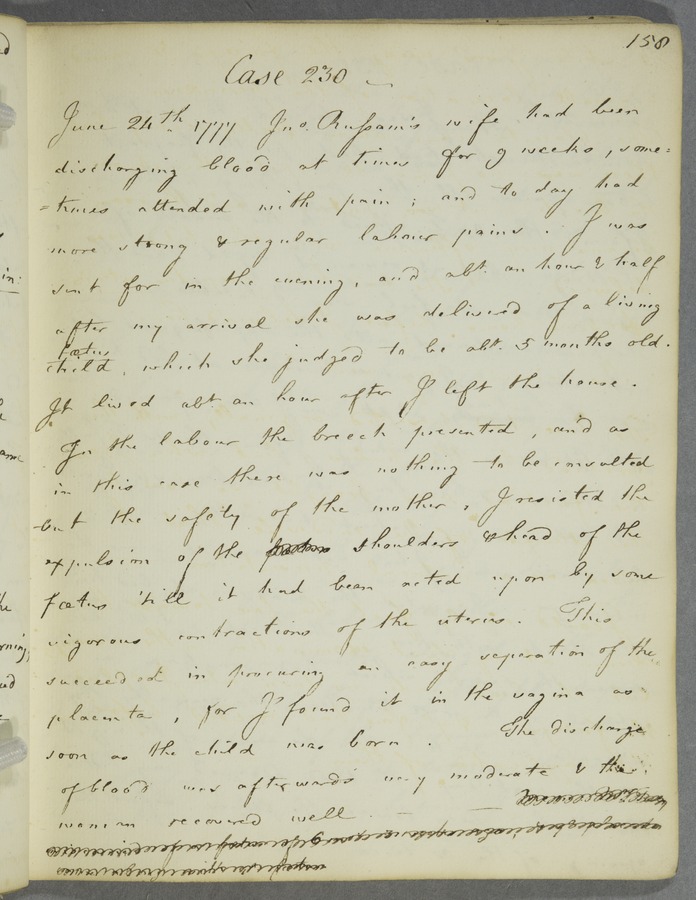 158
Case 230
June 24th 1777 Jno. Russam's wife had been
discharging blood at times for 9 weeks, some=
=times attended with pain; and to day had
more strong & regular labour pains. I was
sent for in the evening, and abt. an hour & half
after my arrival she was delivered of a living
foetus
child, which she judged to be abt. 5 months old.
It lived abt an hour after I left the house.
In the labour the breech presented, and as
in this case there was nothing to be consulted
but the safety of the mother, I resisted the
expulsion of the shoulders & head of the
foetus 'till it had been acted upon by some
vigorous contractions of the uterus. This
succeeded in procuring an easy seperation of the
placenta, for I found it in the vagina as
soon as the child was born. The discharge
of blood was afterwards very moderate & the
woman recovered well.